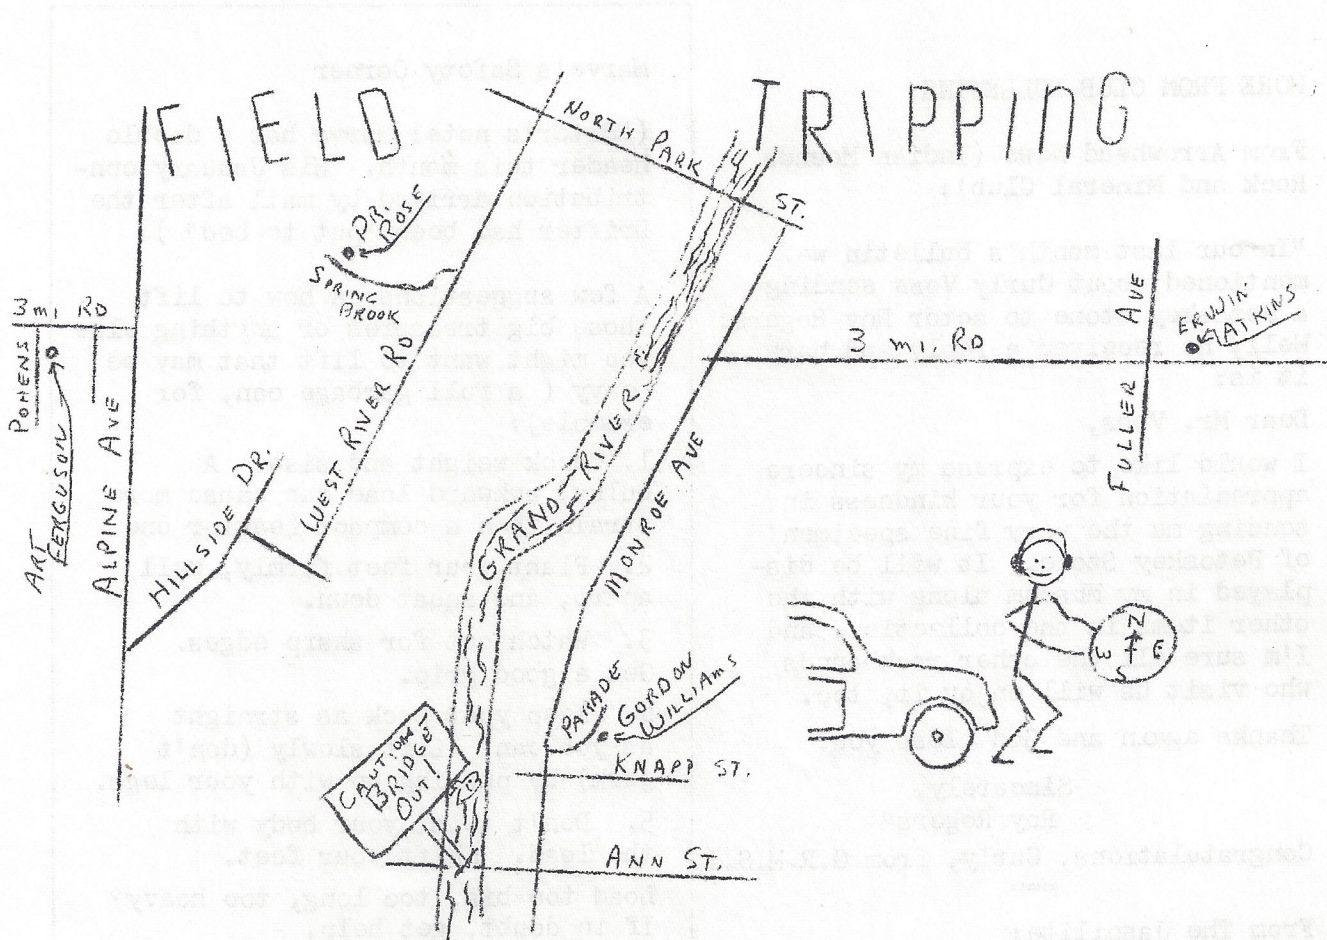 FIELD TRIPPING
NORTH PARK ST.
DR. ROSE
SPRING BROOK
3 mi RD
POHENS
ART FERGUSON
ALPINE AVE
HILLSIDE DR.
WEST RIVER RD
GRAND RIVER
MONROE AVE
3 mi. RD
FULLER AVE
ERWIN ATKINS
N
W E
S
PARADE
GORDON WILLIAMS
KNAPP ST.
CAUTION
BRIDGE
OUT!
ANN ST.